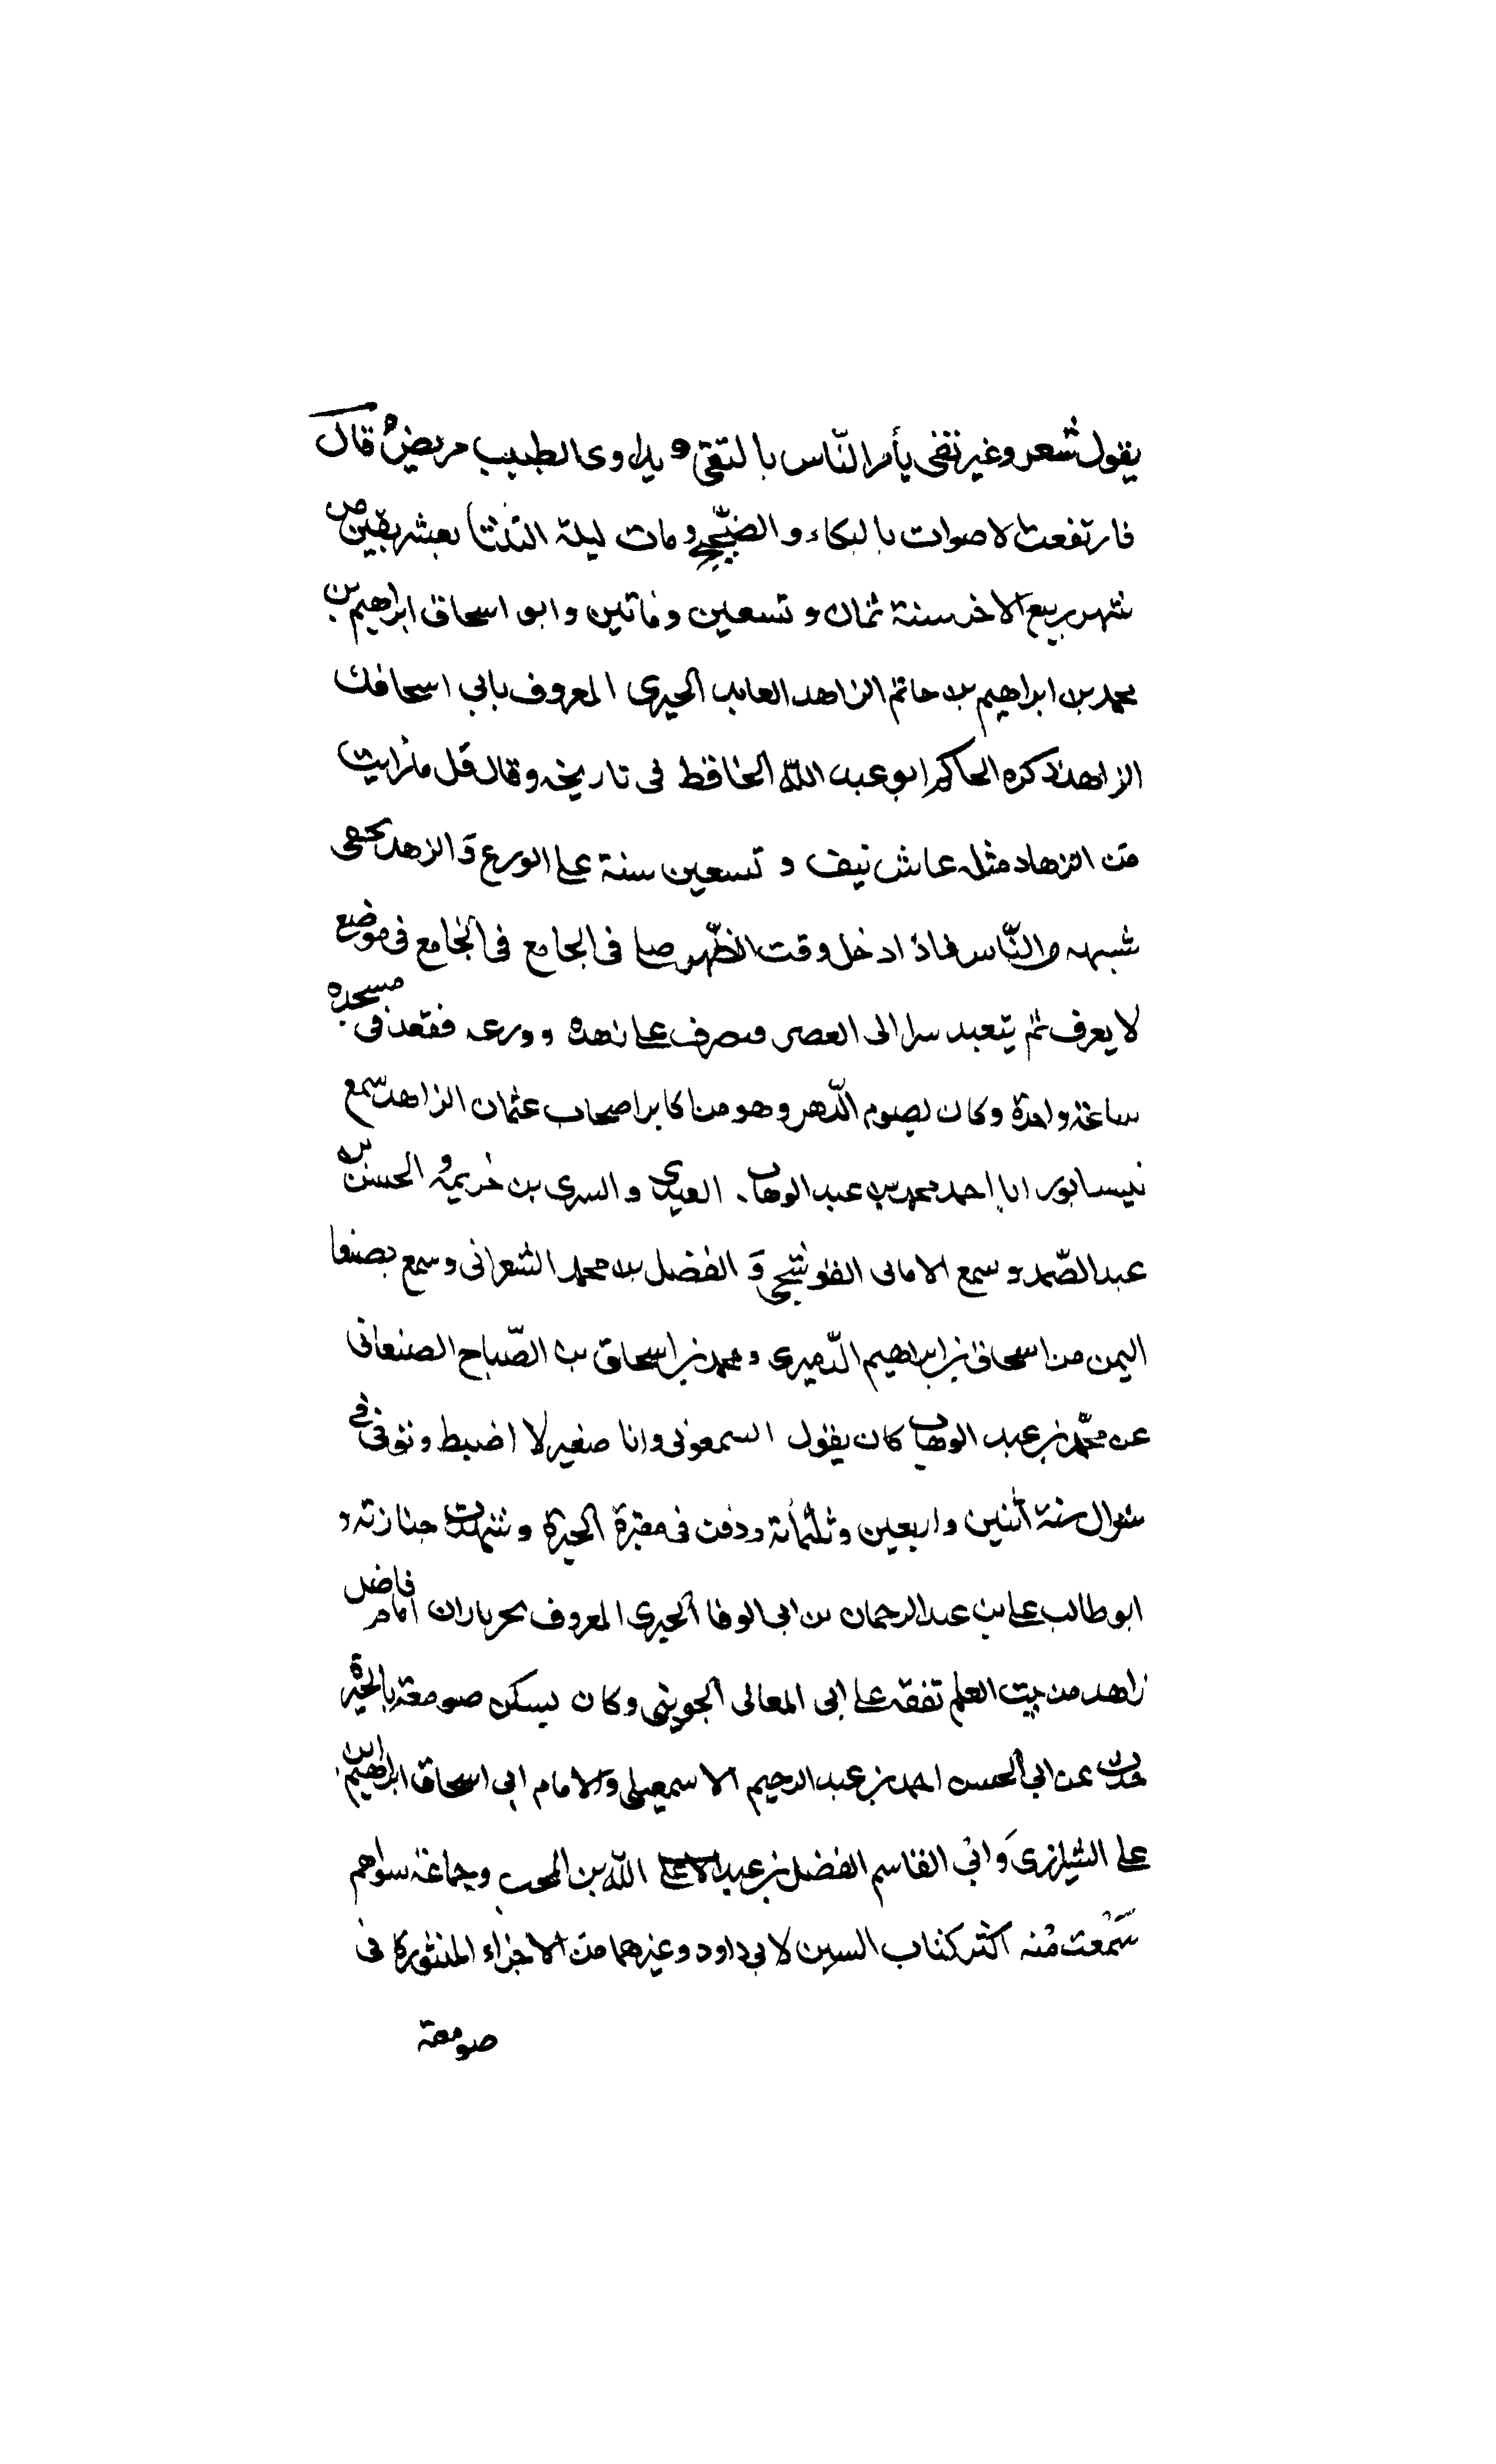 يقول شعر وغير نقى يأمر الناس بالتقى و يداوى الطبيب مريض قال
فارتفعت لاصوات بالبكاء و الضجيج ومات ليلة الثلثا بعشر بقين من
شهر ربيع الاخر سنة ثمان و تسعين و ماتين و ابو اسحاق ابراهيم بن
محمد بن ابراهيم بن حاتم الزاهد العابد الحيرى المعروف بابي اسحاق
الزاهد ذكره الحاكم ابو عبد الله الحافظ فى تاريخه وقال قل ما رايت
من الزهاد مثله عاش نيف و تسعين سنة على الورع و الزهد يخفى
شبهه والناس فاذا دخل وقت الظهر صلى فى الجامع فى الجامع فى موضع
لا يعرف ثم يتعبد سرا الى العصر فيصرف على زهده و ورعه فقعد فى مسجده
ساعة واحدة وكان يصوم الدهر وهو من اكابر اصحاب عثمان الزاهد سمع
نيسابور ابا احمد محمد بن عبد الوهاب العبدى و السرى بن خزيمة و الحسن بن
عبد الصمد و سمع الامالى الفوشنجى و الفضل بن محمد الشعرانى وسمع بصنعا
اليمن من اسحاق بن ابراهيم الدميرى و محمد بن اسحاق بن الصباح الصنعانى
عن محمد بن عبد الوهاب كان يقول اسمعونى وانا صغير لا اضبط و توفى فى
شوال سنة اثنين و اربعين و ثلثمائة ودفن فى مقبرة الحيرة و شهدت جنازته و
ابو طالب على بن عبد الرحمان بن ابى الوفا الحيرى المعروف امام فاضل
زاهد من بيت العلم تفقه على ابى المعالى الجوينى وكان يسكن صومعة بالحيرة
حدث عن ابى الحسن احمد بن عبد الرحيم الاسمعيلى والامام ابى اسحاق ابراهيم بن
على الشيرازى و ابى القاسم الفضل بن عبد الله بن المحب وجماعة سواهم
سمعت منه اكثر كتاب السنن لابى داود وغيرهما من الاجزاء المنثورة فى
صومعة